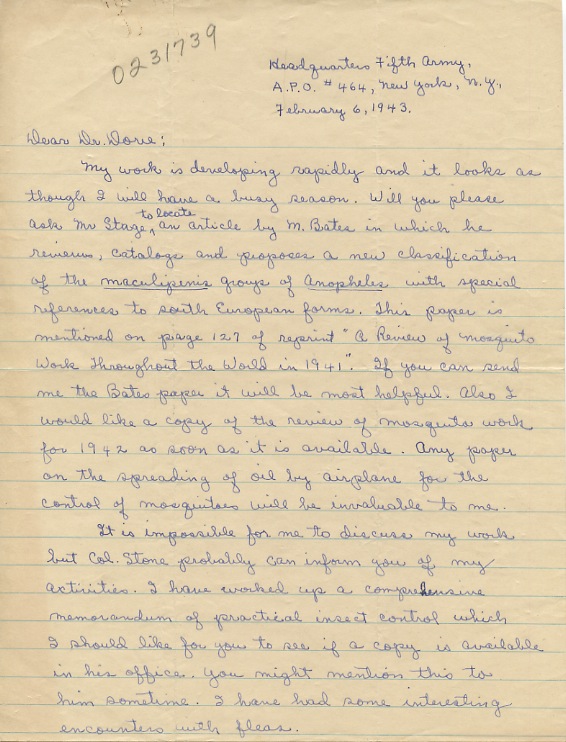 0231739
Headquarters Fifth Army,
A.P.O. # 464, New York, N.Y.,
February 6, 1943.
Dear Dr. Dove:
My work is developing rapidly and it looks as
though I will have a busy season. Will you please
ask Mr Stage to locate an article by M. Bates in which he
reviews, catalogs and proposes a new classification
of the maculipenis groups of Anopheles with special
references to south European forms. This paper is
mentioned on page 127 of reprint "A Review of Mosquito
Work Throughout the World in 1941". If you can send
me the Bates paper it will be most helpful. Also I
would like a copy of the review of mosquito work
for 1942 as soon as it is available. Any paper
on the spreading of oil by airplane for the
control of mosquitoes will be invaluable to me.
It is impossible for me to discuss my work
but Col. Stone probably can inform you of my
activities. I have worked up a comprehensive
memorandum of practical insect control which
I should like for you to see if a copy is available
in his office. You might mention this to
him sometime. I have had some interesting
encounters with fleas.